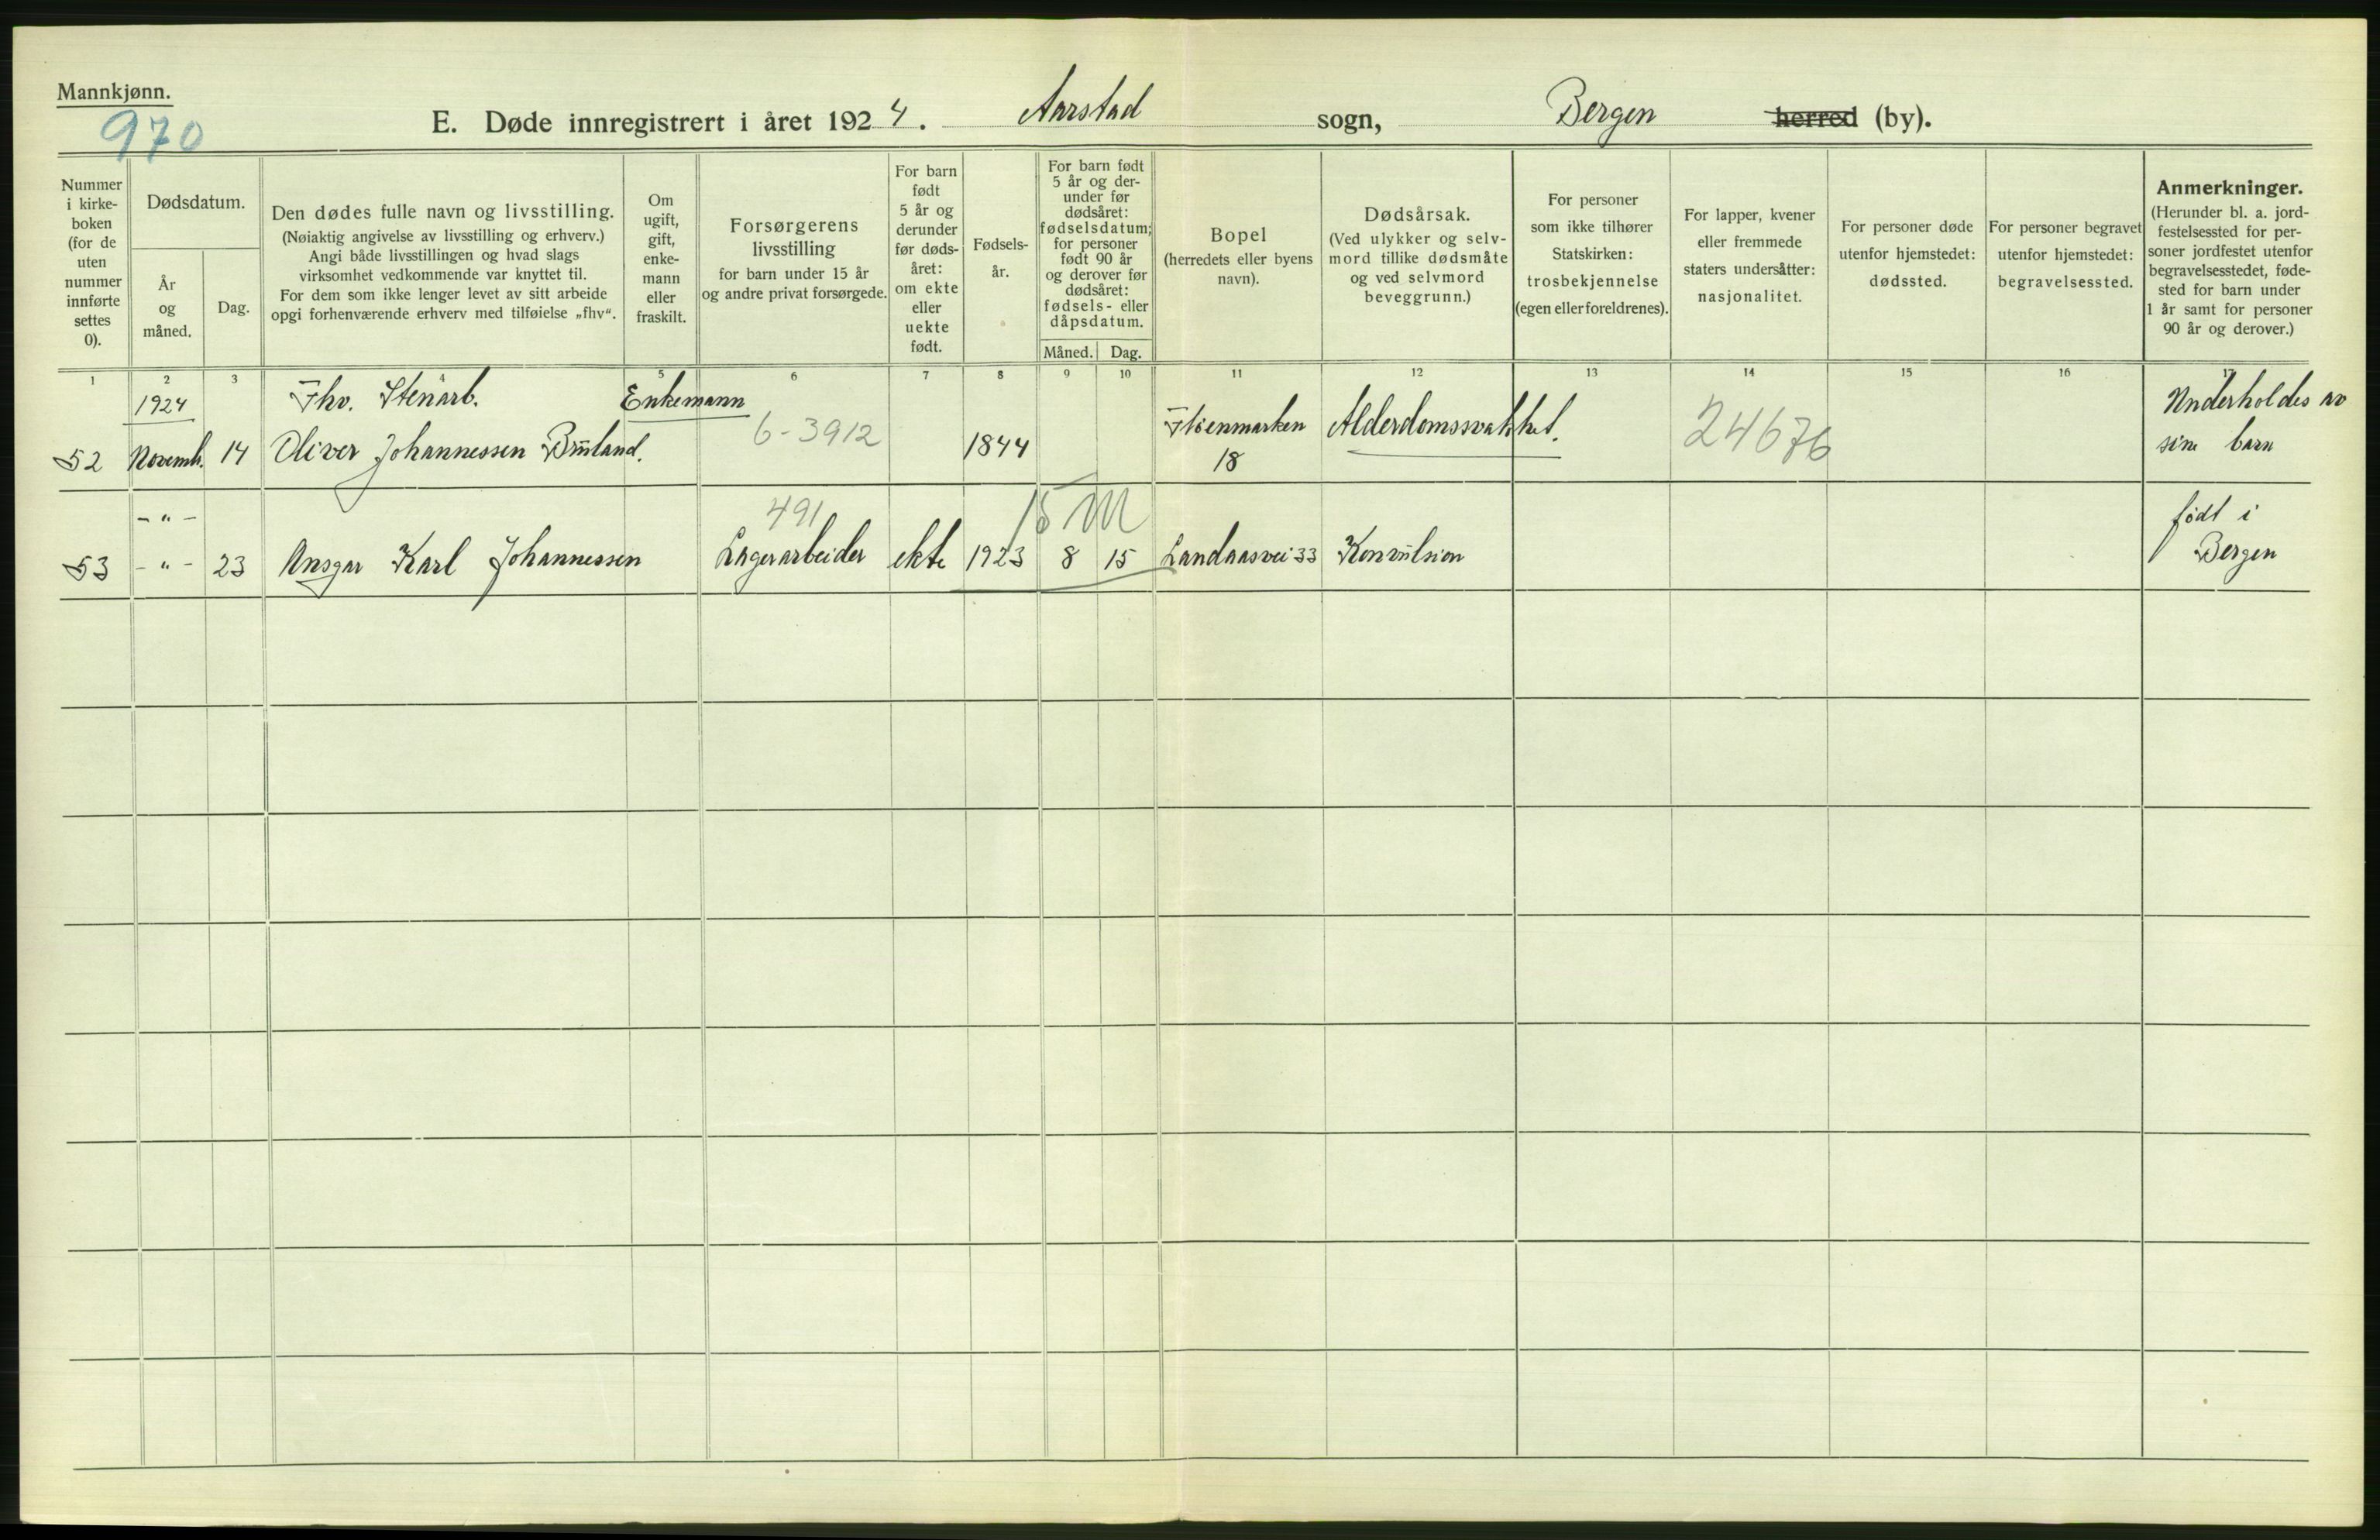 Mannkjønn.
970
E. Døde innregistrert i året 1924. Aarstad sogn, Bergen herred (by).
Nummer
i kirke-
boken
(for de
uten
nummer
innførte
settes
0).
Dødsdatum.
År
og
måned.
Dag.
Den dødes fulle navn og livsstilling.
(Nøiaktig angivelse av livsstilling og erhverv.)
Angi både livsstillingen og hvad slags
virksomhet vedkommende var knyttet til.
For dem som ikke lenger levet av sitt arbeide
opgi forhenværende erhverv med tilføielse „fhv“.
Om
ugift,
gift,
enke-
mann
eller
fraskilt.
Forsørgerens
livsstilling
for barn under 15 år
og andre privat forsørgede.
For barn
født
5 år og
derunder
før døds-
året:
om ekte
eller
uekte
født.
Fødsels-
år.
For barn født
5 år og der-
under før
dødsåret:
fødselsdatum;
for personer
født 90 år
og derover før
dødsåret:
fødsels- eller
dåpsdatum.
Måned. Dag.
Bopel
(herredets eller byens
navn).
Dødsårsak.
(Ved ulykker og selv-
mord tillike dødsmåte
og ved selvmord
beveggrunn.)
For personer
som ikke tilhører
Statskirken:
trosbekjennelse
(egen eller foreldrenes).
For lapper, kvener
eller fremmede
staters undersåtter:
nasjonalitet.
For personer døde
utenfor hjemstedet:
dødssted.
For personer begravet
utenfor hjemstedet:
begravelsessted.
Anmerkninger.
(Herunder bl. a. jord-
festelsessted for per-
soner jordfestet utenfor
begravelsesstedet, føde-
sted for barn under
1 år samt for personer
90 år og derover.)
1 2 3 5 6 7 8 9 10 11 12 13 14 15 16 17
1924 Fhv. Stenarb. Enkemann Underholdes av
52 Novemb. 14 Oliver Johannessen 6-3912 1844 18 Alderdomssvakhet. 24676 sine barn
- " - 491 15 M født i
53 - " - 23 Ansgar Karl Johannessen Lagerarbeider ekte 1923 8 15 Landaasvei 33 Konvulsion Bergen